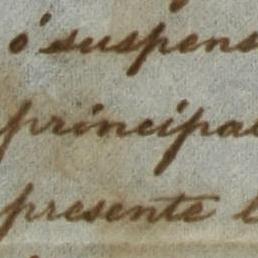 ó suspens
principa
presente l